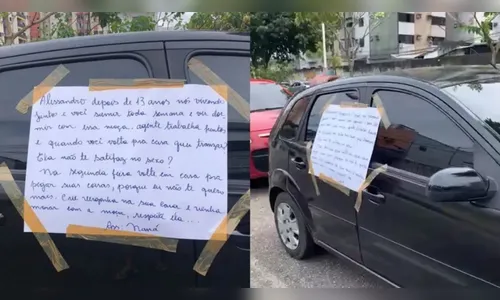 Alessandro depois de 13 anos nós vivendo
junto e você sumir toda semana e vir dor
mir com essa moça, agente trabalha juntos
e quando você volta pra casa quer transar?
Ela não te satisfaz no sexo?
Na segunda feira volte em casa pra
pegar suas coisas, porque eu não te quero
mais. Crie vergonha na sua cara e venha
morar com a moça, respeite ela...